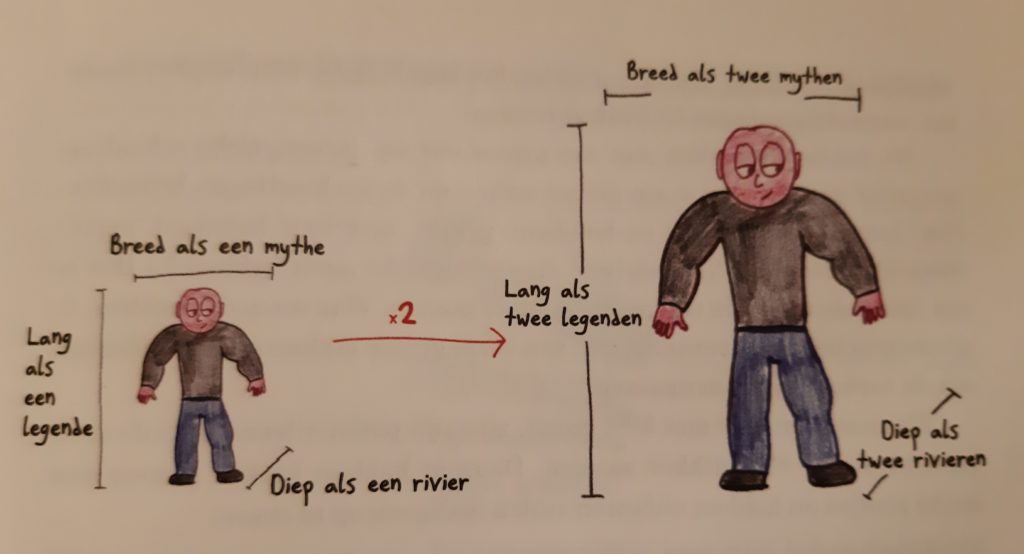 Breed als een mythe
Lang
als
een
legende
Diep als een rivier
x2
Breed als twee mythen
Lang als
twee legenden
Diep als
twee rivieren